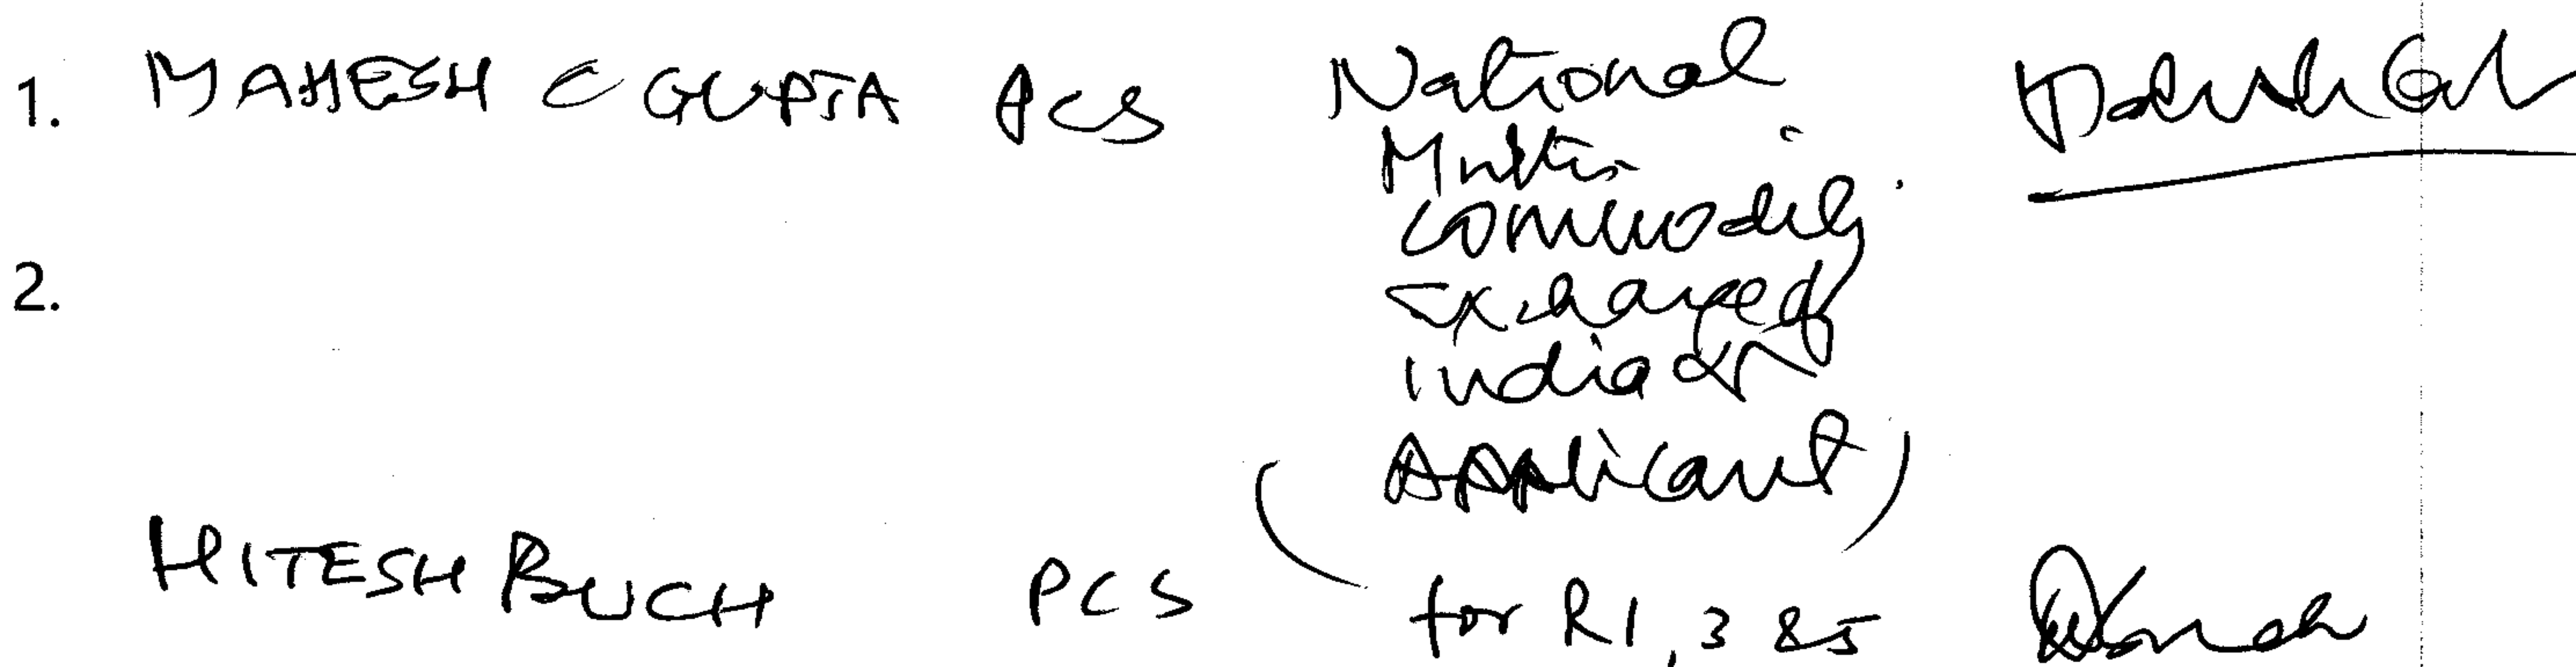 1. MAHESH C GUPTA PCS National
Multi
Commodity
Exchange of
2.
India
Applicant)
HITESH BUCH PCS for R1, 3 & 5